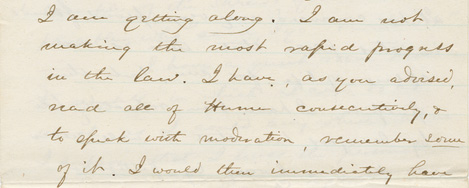 I am getting along. I am not
making the most rapid progress
in the law. I have, as you advised,
read all of Hume consecutively, &
to speak with moderation, remember some
of it. I would then immediately have